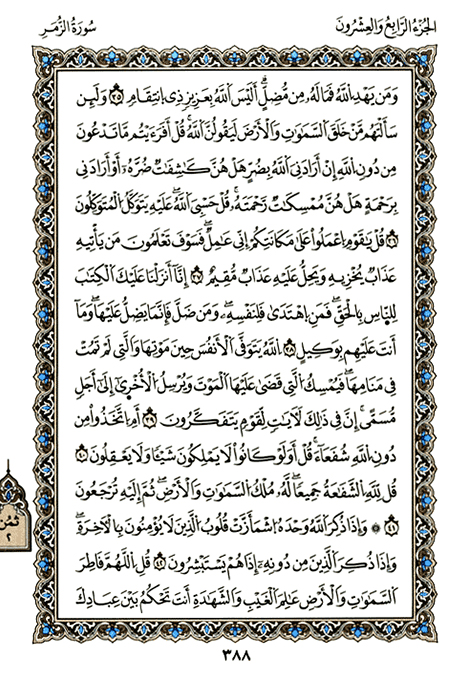 الجزء الرابع والعشرون
سورة الزمر
وَمَن يَهْدِ اللَّهُ فَمَا لَهُ مِن مُّضِلٍّ أَلَيْسَ اللَّهُ بِعَزِيزٍ ذِي انتِقَامٍ ٣٥ وَلَئِن
سَأَلْتَهُم مَّنْ خَلَقَ السَّمَٰوَٰتِ وَالْأَرْضَ لَيَقُولُنَّ اللَّهُ قُلْ أَفَرَءَيْتُم مَّا تَدْعُونَ
مِن دُونِ اللَّهِ إِنْ أَرَادَنِيَ اللَّهُ بِضُرٍّ هَلْ هُنَّ كَٰشِفَٰتُ ضُرِّهِ أَوْ أَرَادَنِي
بِرَحْمَةٍ هَلْ هُنَّ مُمْسِكَٰتُ رَحْمَتِهِ قُلْ حَسْبِيَ اللَّهُ عَلَيْهِ يَتَوَكَّلُ الْمُتَوَكِّلُونَ
٣٦ قُلْ يَٰقَوْمِ اِعْمَلُوا عَلَىٰ مَكَانَتِكُمْ إِنِّي عَٰمِلٌ فَسَوْفَ تَعْلَمُونَ مَن يَأْتِيهِ
عَذَابٌ يُخْزِيهِ وَيَحِلُّ عَلَيْهِ عَذَابٌ مُّقِيمٌ ٣٧ إِنَّا أَنزَلْنَا عَلَيْكَ الْكِتَٰبَ
لِلنَّاسِ بِالْحَقِّ فَمَنِ اِهْتَدَىٰ فَلِنَفْسِهِ وَمَن ضَلَّ فَإِنَّمَا يَضِلُّ عَلَيْهَا وَمَا
أَنتَ عَلَيْهِم بِوَكِيلٍ ٣٨ اللَّهُ يَتَوَفَّى الْأَنفُسَ حِينَ مَوْتِهَا وَالَّتِي لَمْ تَمُتْ
فِي مَنَامِهَا فَيُمْسِكُ الَّتِي قَضَىٰ عَلَيْهَا الْمَوْتَ وَيُرْسِلُ الْأُخْرَىٰ إِلَىٰ أَجَلٍ
مُّسَمًّى إِنَّ فِي ذَٰلِكَ لَآيَٰتٍ لِّقَوْمٍ يَتَفَكَّرُونَ ٣٩ أَمِ اِتَّخَذُوا مِن
دُونِ اللَّهِ شُفَعَاءَ قُلْ أَوَلَوْ كَانُوا لَا يَمْلِكُونَ شَيْئًا وَلَا يَعْقِلُونَ ٤٠
قُل لِّلَّهِ الشَّفَٰعَةُ جَمِيعًا لَّهُ مُلْكُ السَّمَٰوَٰتِ وَالْأَرْضِ ثُمَّ إِلَيْهِ تُرْجَعُونَ
٤١ وَإِذَا ذُكِرَ اللَّهُ وَحْدَهُ اشْمَأَزَّتْ قُلُوبُ الَّذِينَ لَا يُؤْمِنُونَ بِالْآخِرَةِ
وَإِذَا ذُكِرَ الَّذِينَ مِن دُونِهِ إِذَا هُمْ يَسْتَبْشِرُونَ ٤٢ قُلِ اللَّهُمَّ فَاطِرَ
السَّمَٰوَٰتِ وَالْأَرْضِ عَٰلِمَ الْغَيْبِ وَالشَّهَٰدَةِ أَنتَ تَحْكُمُ بَيْنَ عِبَادِكَ
ثمن
٢
٣٨٨